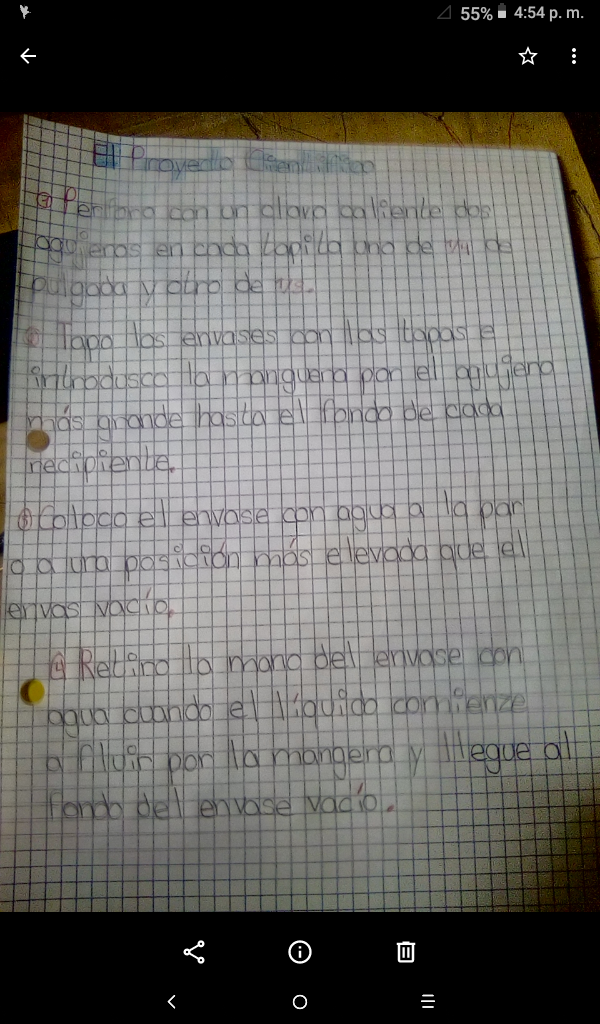 55% 4:54 p. m.
El Proyecto Científico
① Perforo con un clavo caliente dos
agujeros en cada tapita uno de 1/4 de
pulgada y otro de 1/8.
② Tapo los envases con las tapas e
introdusco la manguera por el agujero
más grande hasta el fondo de cada
recipiente.
③ Coloco el envase con agua a la par
o a una posición más elevada que el
envas vacío.
④ Retiro la mano del envase con
agua cuando el líquido comienze
a fluir por la mangera y llegue al
fondo del envase vacío.